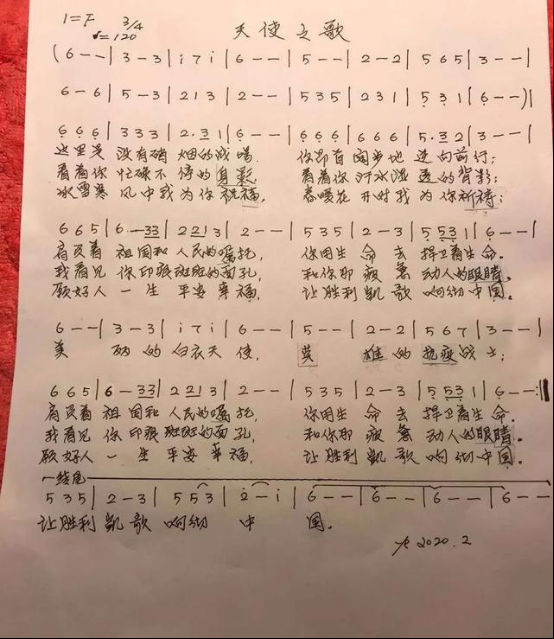 1=F 3/4
♩=120
天使之歌
(6 - - | 3 - 3 | i 7 i | 6 - - | 5 - - | 2 - 2 | 5 6 5 | 3 - - |
6 - 6 | 5 - 3 | 2 1 3 | 2 - - | 5 3 5 | 2 3 1 | 5 3 1 | 6 - - ) |
6 6 6 | 3 3 3 | 2 . 3 1 | 6 - - | 6 6 6 | 6 6 6 | 5 . 3 2 | 3 - - |
这里是 没有硝 烟的战场, 你却昂 首阔步地 逆向前行;
看着你 忙碌不 停的身影 看着你 汗水湿 透的背影;
冰雪寒 风中我 为你祝福, 春暖花 开时我 为你祈祷;
6 6 5 | 6 - 3 3 | 2 2 1 3 | 2 - - | 5 3 5 | 2 - 3 | 5 5 3 1 | 6 - - |
肩负着 祖国和 人民的嘱托, 你用生 命去 捍卫着生命。
我看见 你印痕斑斑的面孔, 和你那 疲惫 动人的眼睛。
愿好人 一生 平安幸福, 让胜利 凯歌 响彻中国。
6 - - | 3 - 3 | i 7 i | 6 - - | 5 - - | 2 - 2 | 5 6 7 | 3 - - |
美 丽的 白衣天 使, 英 雄的 抗疫战 士;
6 6 5 | 6 - 3 3 | 2 2 1 3 | 2 - - | 5 3 5 | 2 - 3 | 5 5 3 1 | 6 - - :‖
肩负着 祖国和 人民的嘱托, 你用生 命去 捍卫着生命。
我看见 你印痕斑斑的面孔, 和你那 疲惫 动人的眼睛。
愿好人 一生 平安幸福, 让胜利 凯歌 响彻中国。
结尾
5 3 5 | 2 - 3 | 5 5 3 | 2 - i | 6 - - | 6 - - | 6 - - | 6 - -
让胜利 凯歌 响彻 中 国。
2020.2